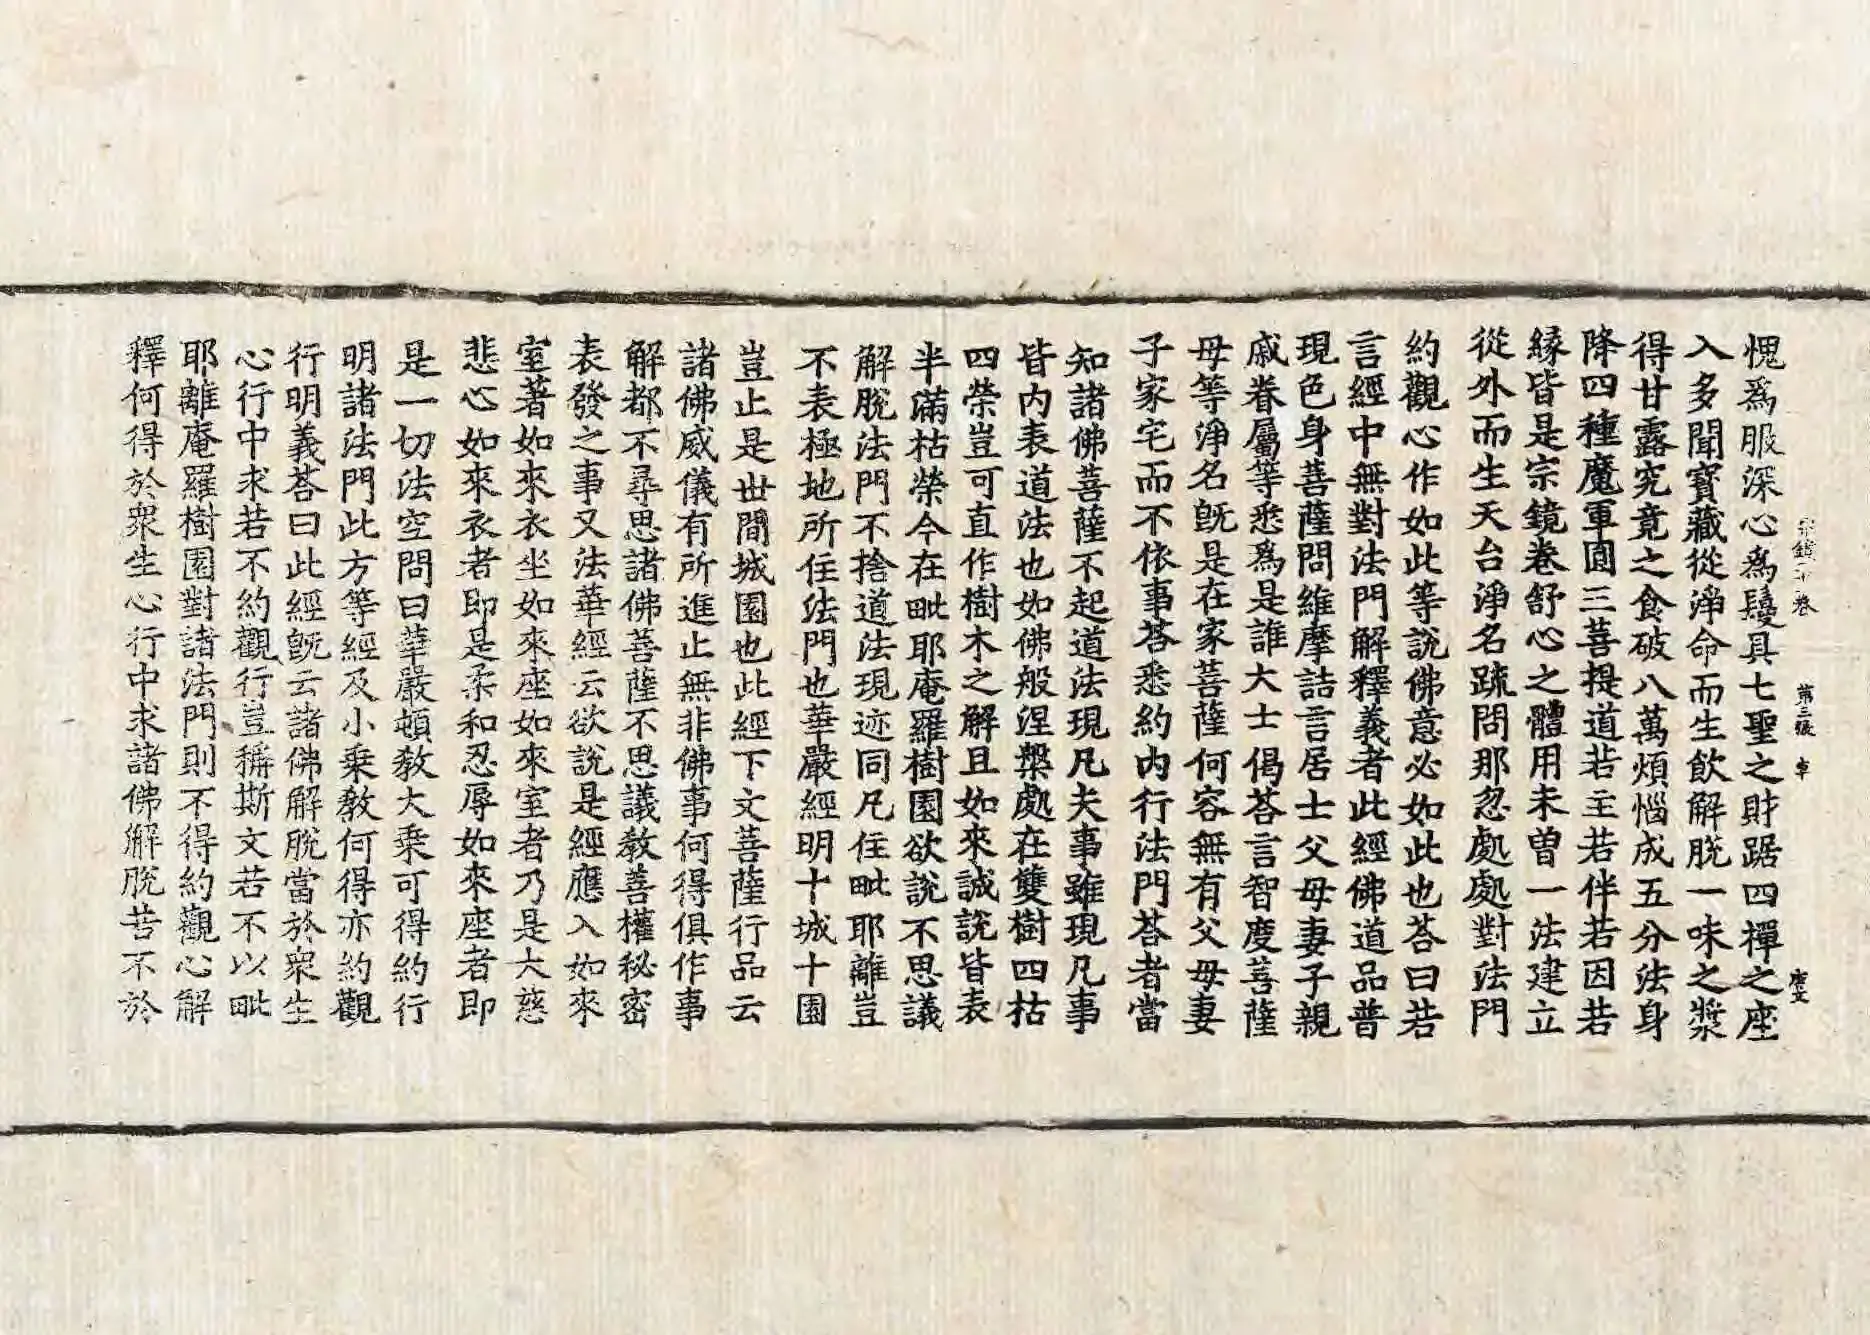 愧爲服深心爲鬘具七聖之財踞四禪之座
入多聞寳藏從淨命而生飲解脫一味之漿
得甘露究竟之食破八萬煩惱成五分法身
降四種魔軍圓三菩提道若主若伴若因若
縁皆是宗鏡卷舒心之體用未曽一法建立
從外而生天台淨名䟽問那忽處處對法門
約觀心作如此等說佛意必如此也荅曰若
言經中無對法門解釋義者此經佛道品普
現色身菩薩問維摩詰言居士父母妻子親
戚眷屬等悉爲是誰大士偈荅言智度菩薩
母等淨名旣是在家菩薩何容無有父母妻
子家宅而不依事荅悉約内行法門荅者當
知諸佛菩薩不起道法現凡夫事雖現凡事
皆内表道法也如佛般涅槃處在雙樹四枯
四榮豈可直作樹木之解且如來誠說皆表
半滿枯榮今在毗耶庵羅樹園欲說不思議
解脫法門不捨道法現迹同凡住毗耶離豈
不表極地所住法門也華嚴經明十城十園
豈止是世間城園也此經下文菩薩行品云
諸佛威儀有所進止無非佛事何得俱作事
解都不尋思諸佛菩薩不思議教善權秘密
表發之事又法華經云欲說是經應入如來
室著如來衣坐如來座如來室者乃是大慈
悲心如來衣者即是柔和忍辱如來座者即
是一切法空問曰華嚴頓教大乗可得約行
明諸法門此方等經及小乗教何得亦約觀
行明義荅曰此經旣云諸佛解脫當於衆生
心行中求若不約觀行豈稱斯文若不以毗
耶離庵羅樹園對諸法門則不得約觀心解
釋何得於衆生心行中求諸佛解脫若不於